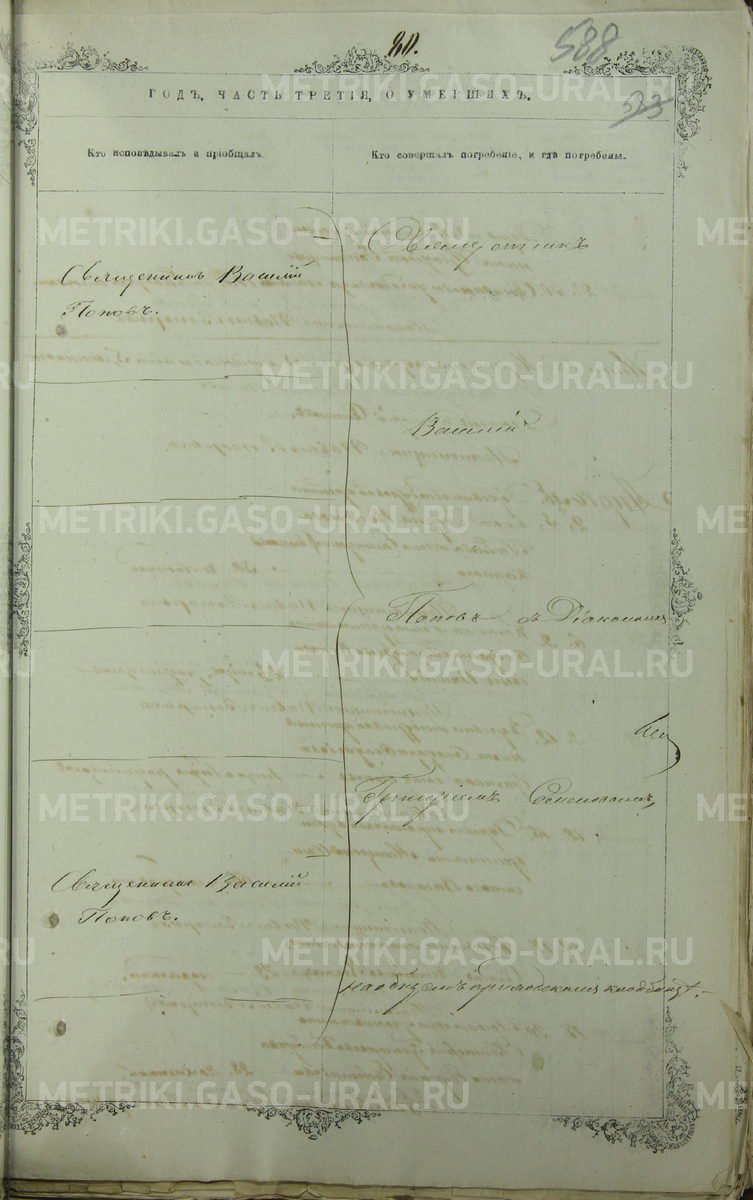 80.
588
523
ГОДЪ, ЧАСТЬ ТРЕТІЯ, О УМЕРШИХЪ.
Кто исповѣдывалъ и пріобщалъ.
Кто совершалъ погребеніе, и гдѣ погребены.
Священникъ
Священникъ Василій
Поповъ.
Василій
Поповъ съ Діакономъ
Григоріемъ
Священникъ Василій
Поповъ.
на общемъ приходскомъ кладбищѣ.
METRIKI.GASO-URAL.RU